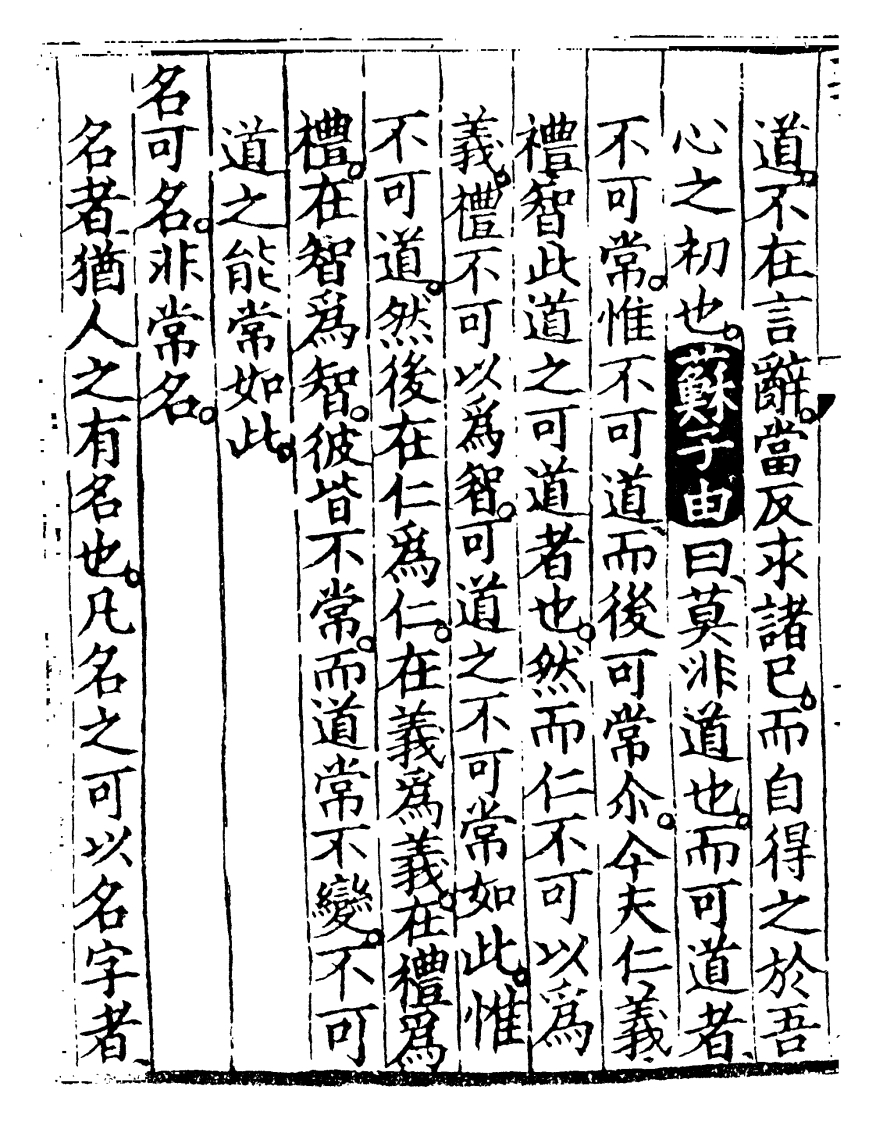 道。不在言辭。當反求諸已。而自得之於吾
心之初也。蘇子由曰、莫非道也。而可道者、
不可常。惟不可道、而後可常尒。今夫仁義、
禮、智此道之可道者也。然而仁不可以爲
義。禮不可以爲智。可道之不可常如此。惟
不可道。然後在仁爲仁。在義爲義。在禮爲
禮。在智爲智。彼皆不常。而道常不變。不可
道之能常如此。
名可名。非常名。
名者、猶人之有名也。凡名之可以名字者、